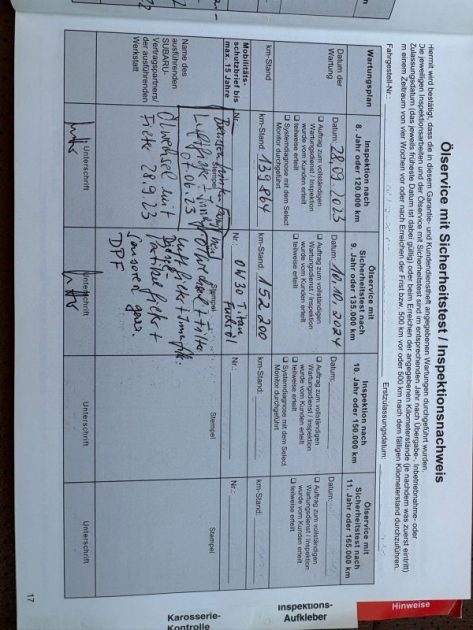 Ölservice mit Sicherheitstest / Inspektionsnachweis
Hiermit wird bestätigt, dass die in diesem Garantie- und Kundendienstheft angegebenen Wartungen durchgeführt wurden.
Die jeweiligen Inspektionsarbeiten und der Ölservice mit Sicherheitstest sind im entsprechenden Jahr nach Übergabe-, Inbetriebnahme- oder
Zulassungsdatum (das jeweils früheste Datum ist dabei gültig) oder beim Erreichen der angegebenen Kilometerstände (je nachdem was zuerst eintritt)
in einem Zeitraum von vier Wochen vor oder nach Erreichen der Frist bzw. 500 km vor oder 500 km nach dem fälligen Kilometerstand durchzuführen.
Fahrgestell-Nr.:
Erstzulassungsdatum:
Wartungsplan
Inspektion nach
8. Jahr oder 120.000 km
Ölservice mit
Sicherheitstest nach
9. Jahr oder 135.000 km
Inspektion nach
10. Jahr oder 150.000 km
Ölservice mit
Sicherheitstest nach
11. Jahr oder 165.000 km
Datum der
Wartung
Datum: 28.09.2023
Datum: 10.10.2024
Datum:
Datum:
Auftrag zum vollständigen
Wartungsdienst / Inspektion
wurde vom Kunden erteilt
teilweise erteilt
Systemdiagnose mit dem Select
Monitor durchgeführt
Auftrag zum vollständigen
Wartungsdienst / Inspektion
wurde vom Kunden erteilt
teilweise erteilt
Auftrag zum vollständigen
Wartungsdienst / Inspektion
wurde vom Kunden erteilt
teilweise erteilt
Systemdiagnose mit dem Select
Monitor durchgeführt
Auftrag zum vollständigen
Wartungsdienst / Inspektion
wurde vom Kunden erteilt
teilweise erteilt
km-Stand
km-Stand: 139.864
km-Stand: 152 200
km-Stand:
km-Stand:
Mobilitäts-
schutzbrief bis
max. 15 Jahre
Nr.:
Nr.:
Nr.:
Name des
ausführenden
SUBARU-
Vertragspartners/
der ausführenden
Werkstatt
07.06.23
Ölwechsel mit
Filter 28.9.23
0W30 Titan
Ölwechsel + Filter
Luftfilter
DPF
Stempel
Stempel
Stempel
Unterschrift
Unterschrift
Unterschrift
Unterschrift
17
Karosserie-
Kontrolle
Inspektions-
Aufkleber
Hinweise